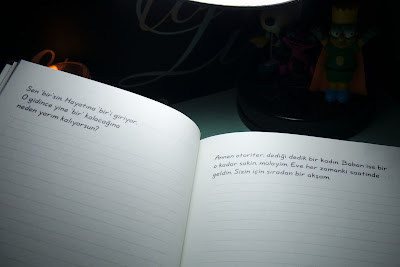 Sen 'bir'sin. Hayatına 'bir'i giriyor.
O gidince yine 'bir' kalacağına
neden yarım kalıyorsun?
Annen otoriter, dediği dedik bir kadın. Baban ise bir
o kadar sakin, mülayim. Eve her zamanki saatinde
geldin. Sizin için sıradan bir akşam.